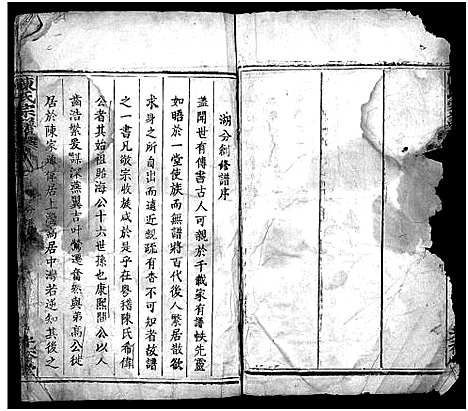 湖分創修譜序
蓋聞世有傳書古人可親於千載家有譜帙先靈
如晤於一堂使族而無譜將百代後人繁居散歌
求身之所自出而遠近親疏有杳不可知者故譜
之一書凡敬宗收族咸於是乎在粵稽陳氏希偉
公者其始祖路海公十六世孫也康熙間公以人
齒浩繁爰謀深燕翼吉叶鶯遷奮然與弟高公徙
居於陳家邊偉居上灣高居中灣若逆知其後之
陳氏宗譜